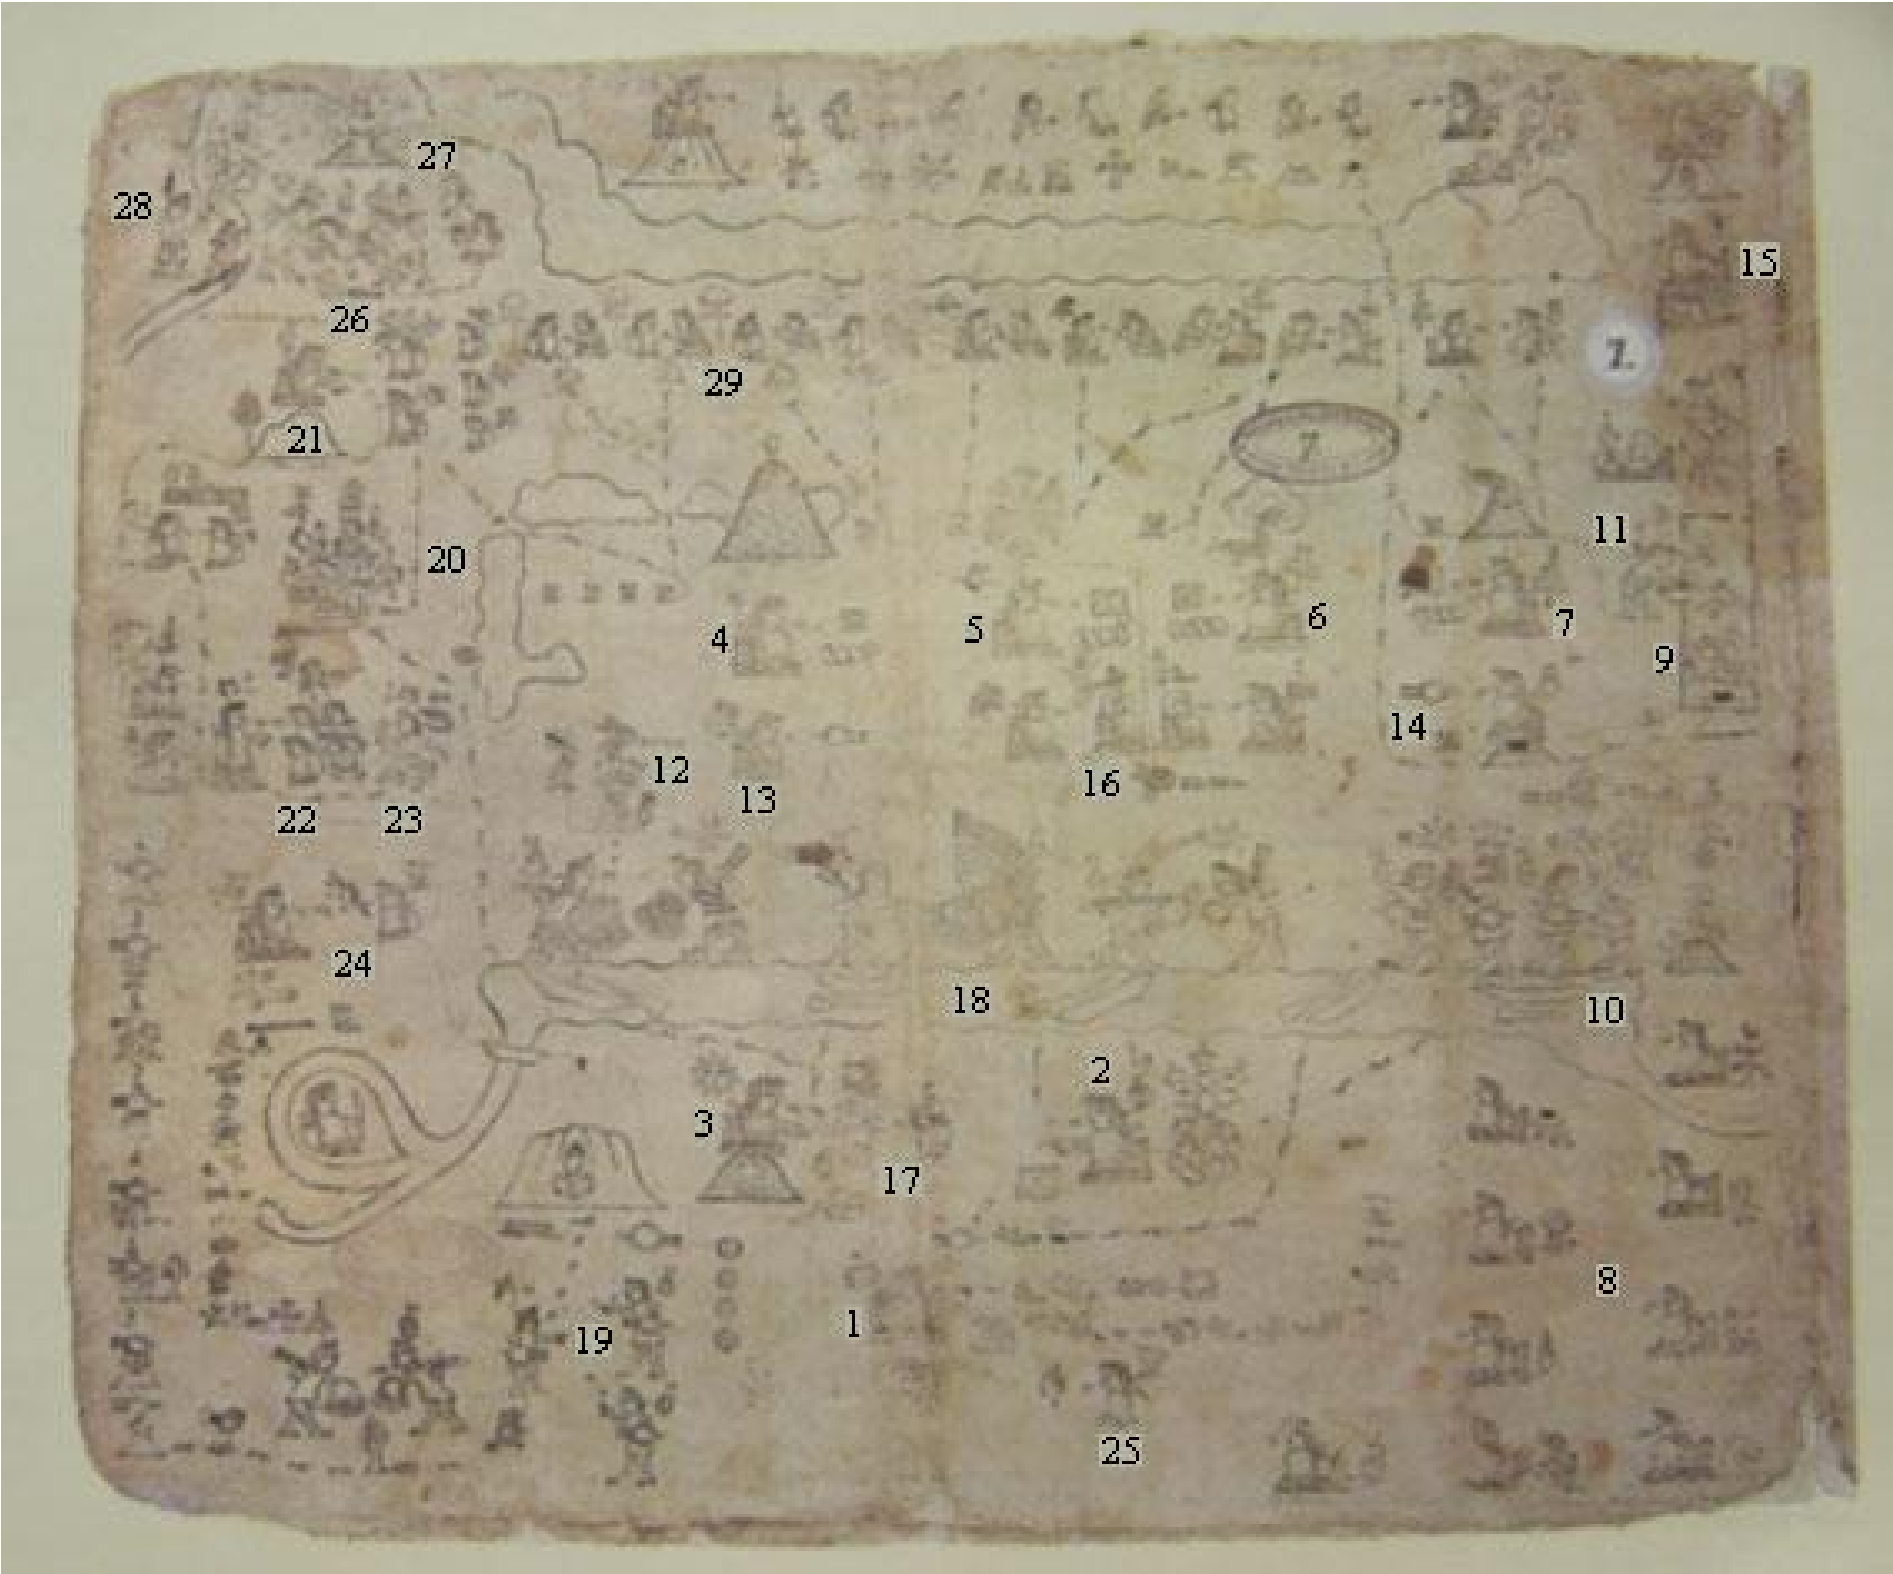 27
28
15
26
29
21
11
20
4 5 6 7
9
14
12 16
13
22 23
24
18 10
2
3
17
8
19 1
25